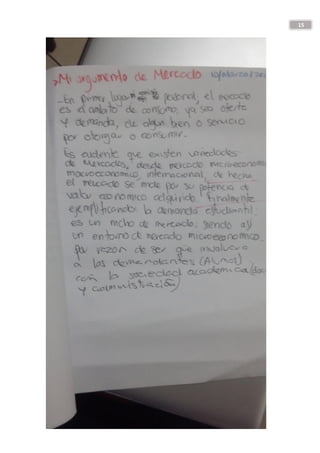 15
Mi argumento de Mercado 10/Marzo/20
- En primer lugar personal, el mercado
es el ambito de consumo ya sea oferta
y demanda, de algun bien o servicio
por otorgar o consumir.
Es evidente que existen variedades
de Mercados, desde mercado microeconomic
macroeconomico, internacional, de hecho
el mercado se mide por su potencia de
valor economico adquirido, finalmente
ejemplificando: la demanda estudiantil
es un nicho de mercado, siendo asi
un entorno de mercado microeconomico
por razon de ser que involucra
a las demandantes (Alumnos)
con la sociedad academica (doc
y administración)